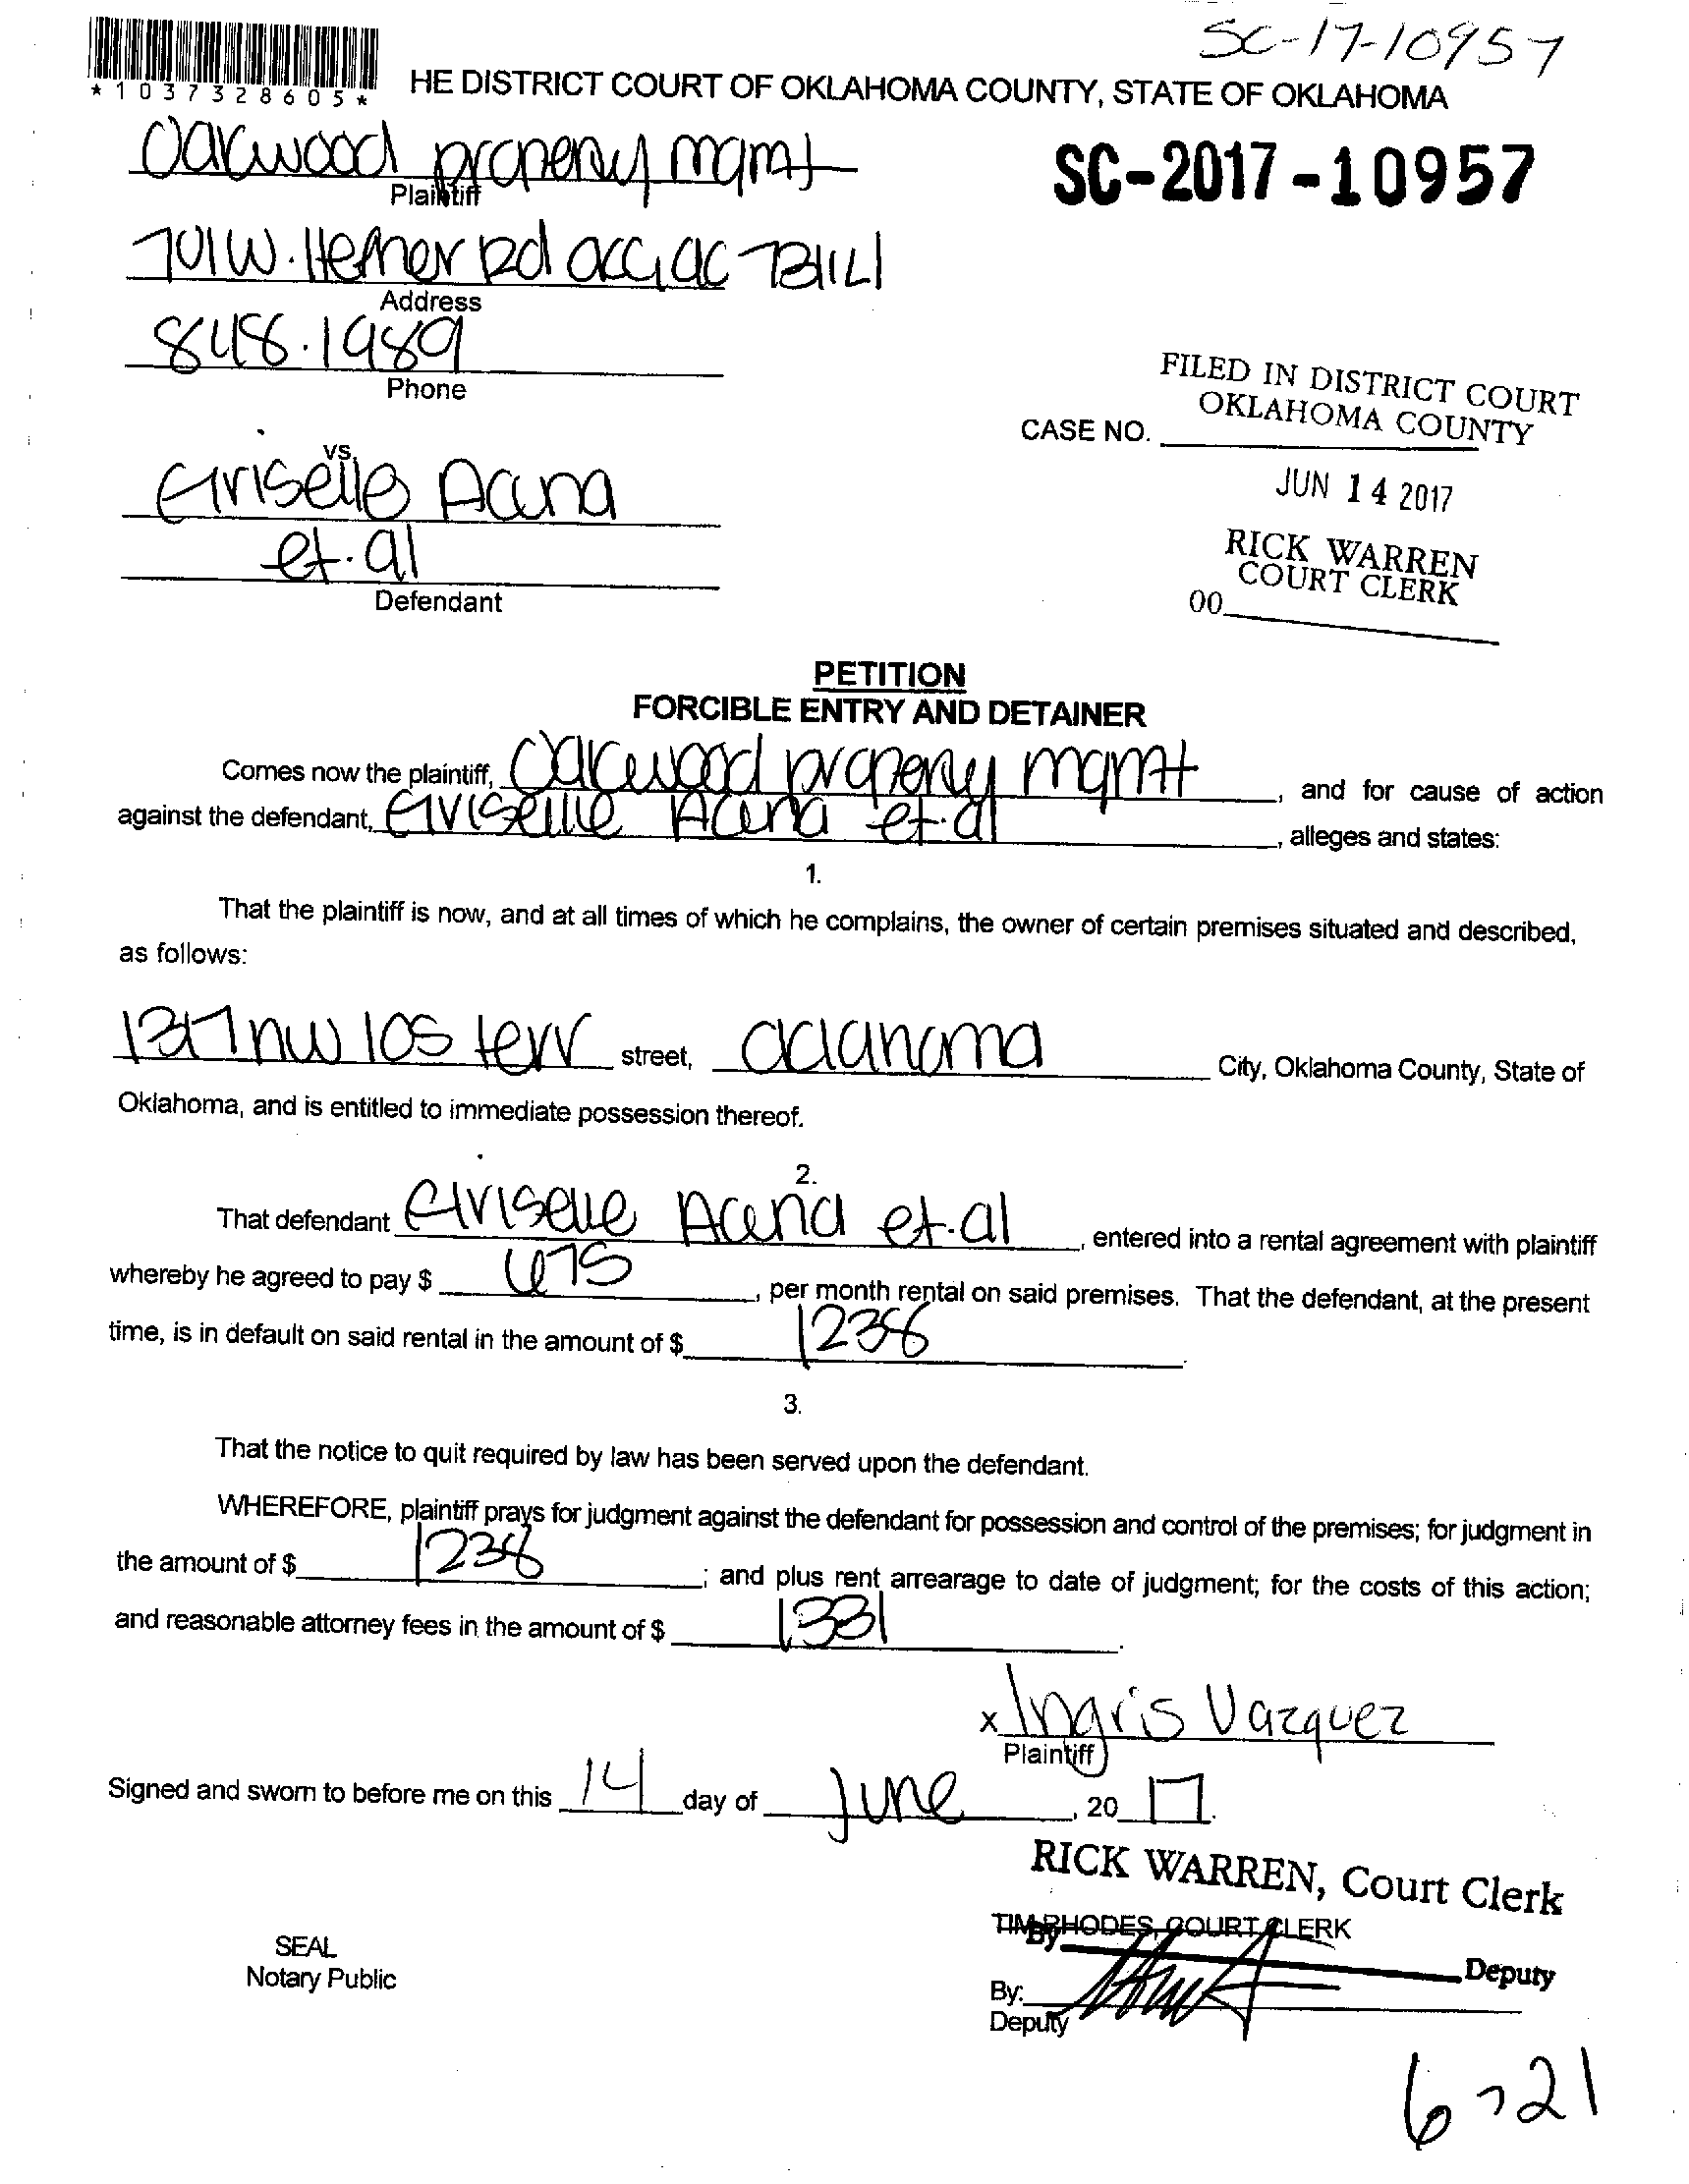 SC-17-10957
*1037328605*
HE DISTRICT COURT OF OKLAHOMA COUNTY, STATE OF OKLAHOMA
Oakwood property mgmt
Plaintiff
SC-2017-10957
701 W. Hefner Rd OKC, OK 73114
Address
848.1989
Phone
FILED IN DISTRICT COURT
OKLAHOMA COUNTY
CASE NO.
JUN 14 2017
RICK WARREN
COURT CLERK
00
vs.
Griselle Acuna
et.al
Defendant
PETITION
FORCIBLE ENTRY AND DETAINER
Comes now the plaintiff, Oakwood property mgmt, and for cause of action
against the defendant, Griselle Acuna et.al, alleges and states:
1.
That the plaintiff is now, and at all times of which he complains, the owner of certain premises situated and described,
as follows:
1317 nw 105 terr street, Oklahoma City, Oklahoma County, State of
Oklahoma, and is entitled to immediate possession thereof.
2.
That defendant Griselle Acuna et.al, entered into a rental agreement with plaintiff
whereby he agreed to pay $ 675, per month rental on said premises. That the defendant, at the present
time, is in default on said rental in the amount of $ 1238.
3.
That the notice to quit required by law has been served upon the defendant.
WHEREFORE, plaintiff prays for judgment against the defendant for possession and control of the premises; for judgment in
the amount of $ 1238; and plus rent arrearage to date of judgment; for the costs of this action;
and reasonable attorney fees in the amount of $ 1331.
x Ingris Vazquez
Plaintiff
Signed and sworn to before me on this 14 day of June, 20 17.
RICK WARREN, Court Clerk
TIM RHODES, COURT CLERK
By Deputy
SEAL
Notary Public
By:
Deputy
6-21